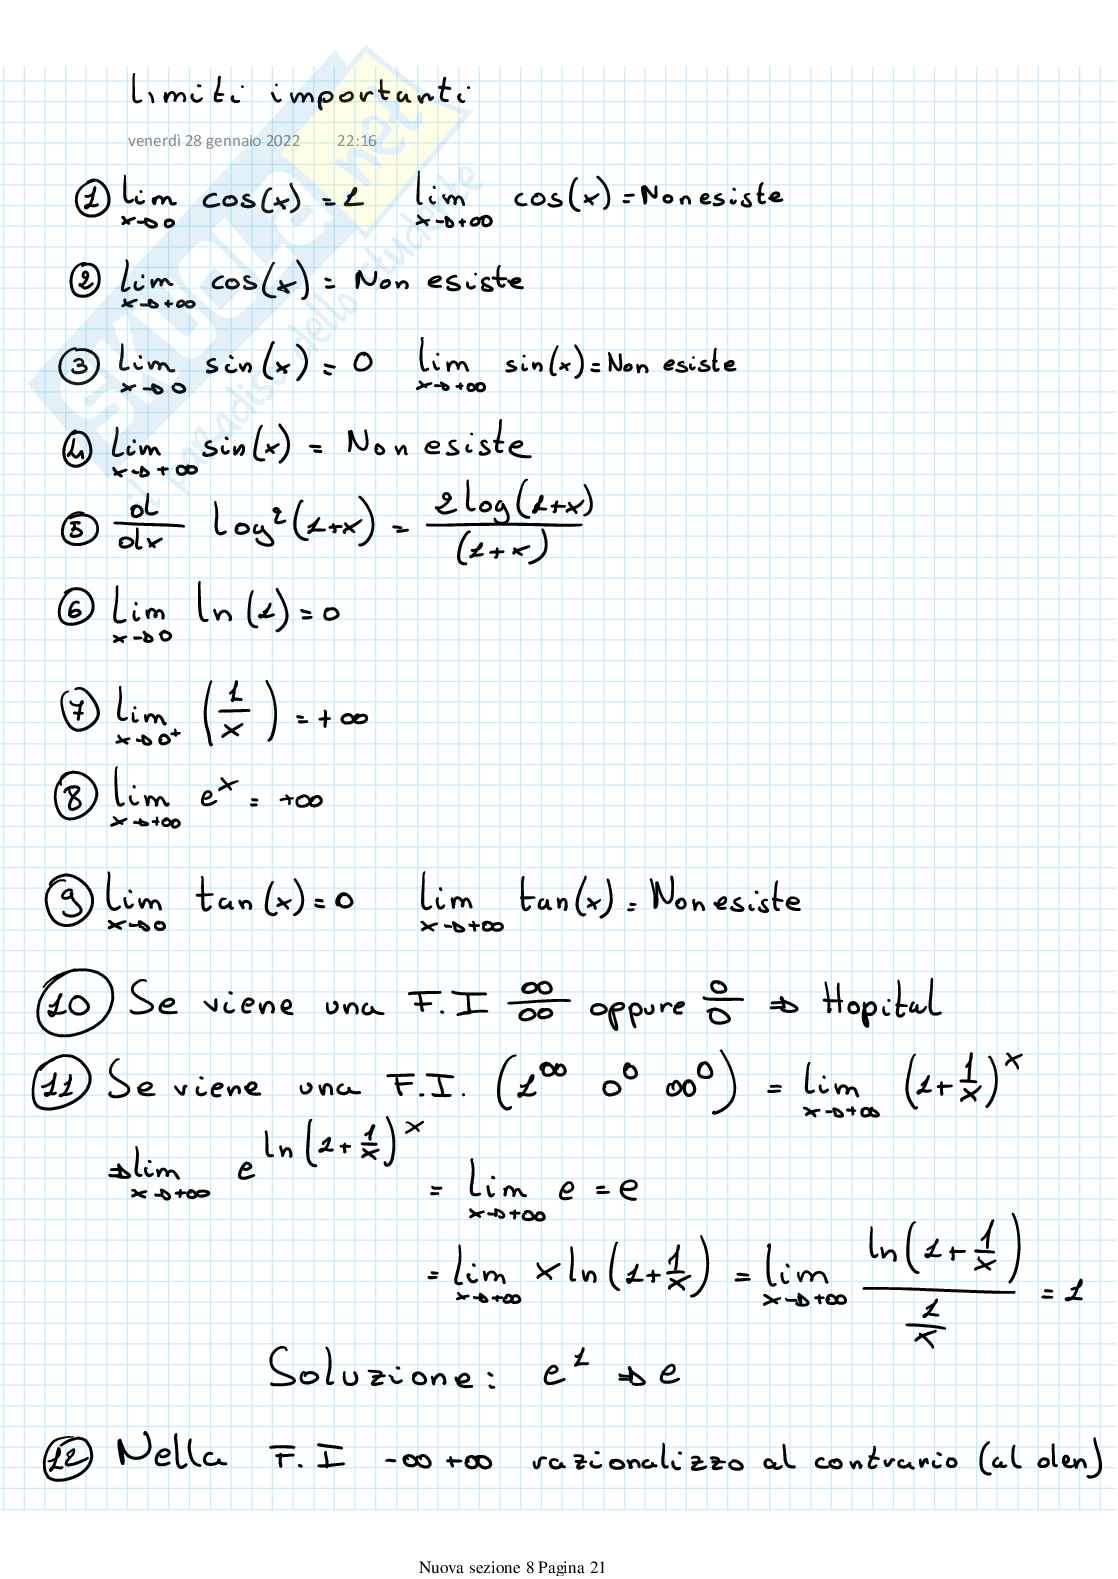 limiti importanti
venerdì 28 gennaio 2022 22:16
SKUOLA.net
il paradiso dello studente
① lim x→0 cos(x) = 1 lim x→+∞ cos(x) = Non esiste
② lim x→+∞ cos(x) = Non esiste
③ lim x→0 sin(x) = 0 lim x→+∞ sin(x) = Non esiste
④ lim x→+∞ sin(x) = Non esiste
⑤ d/dx log²(1+x) = 2log(1+x)/(1+x)
⑥ lim x→0 ln(1) = 0
⑦ lim x→0⁺ (1/x) = +∞
⑧ lim x→+∞ eˣ = +∞
⑨ lim x→0 tan(x) = 0 lim x→+∞ tan(x) = Non esiste
⑩ Se viene una F.I ∞/∞ oppure 0/0 ⇒ Hopital
⑪ Se viene una F.I. (1^∞ 0^0 ∞^0) = lim x→+∞ (1+1/x)^x
⇒ lim x→+∞ e^(ln(1+1/x)^x) = lim x→+∞ e = e
= lim x→+∞ x ln(1+1/x) = lim x→+∞ ln(1+1/x)/(1/x) = 1
Soluzione: e¹ ⇒ e
⑫ Nella F.I -∞ +∞ razionalizzo al contrario (al den)
Nuova sezione 8 Pagina 21